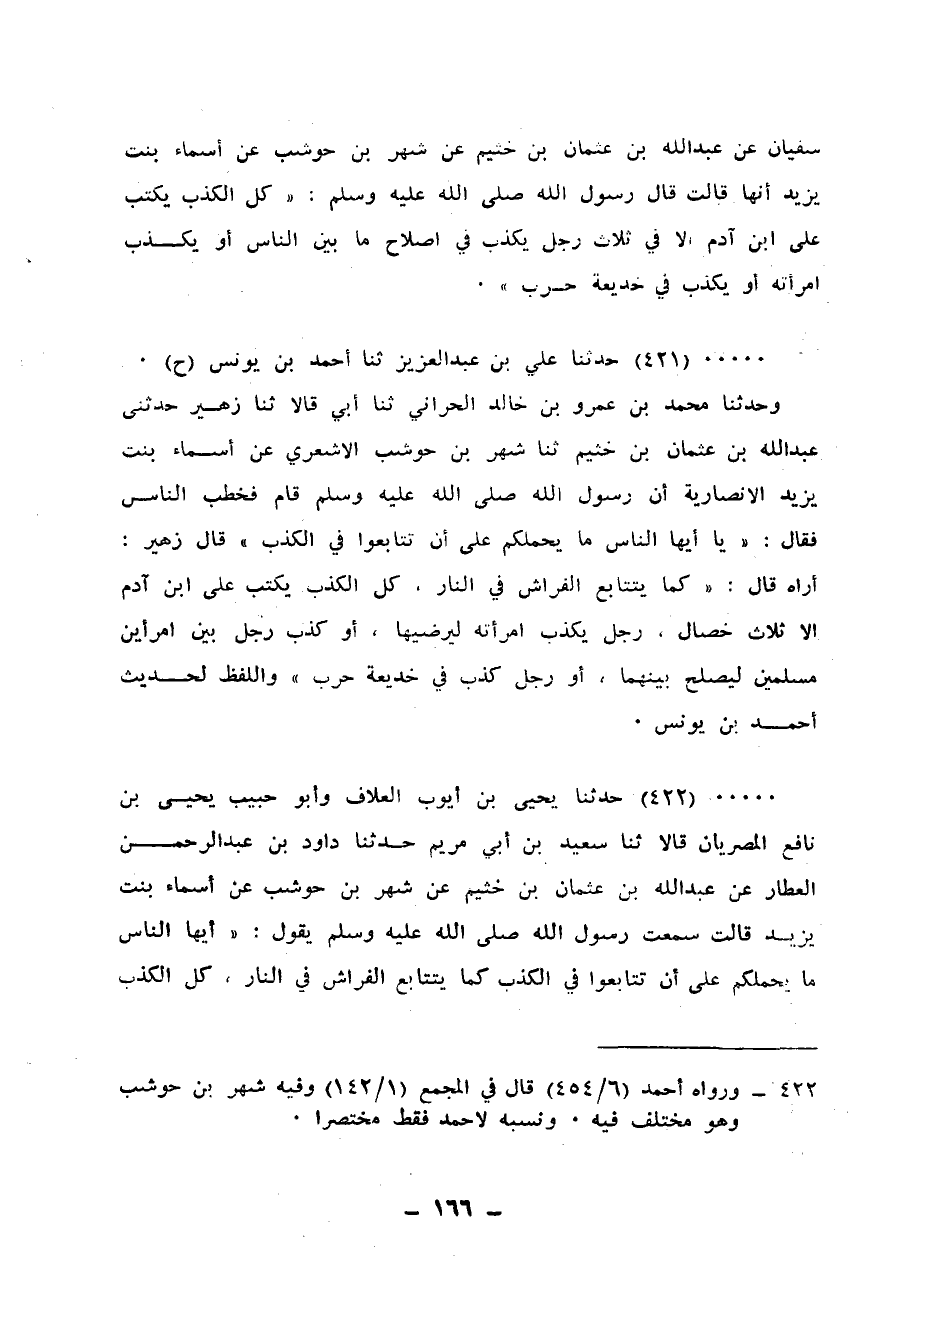 سفيان عن عبدالله بن عثمان بن خثيم عن شهر بن حوشب عن أسماء بنت
يزيد أنها قالت قال رسول الله صلى الله عليه وسلم : « كل الكذب يكتب
على ابن آدم الا في ثلاث رجل يكذب في اصلاح ما بين الناس أو يكـــذب
امرأته أو يكذب في خديعة حـرب » ٠
٠٠٠٠٠ (٤٢١) حدثنا علي بن عبدالعزيز ثنا أحمد بن يونس (ح) ٠
وحدثنا محمد بن عمرو بن خالد الحراني ثنا أبي قالا ثنا زهـير حدثنى
عبدالله بن عثمان بن خثيم ثنا شهر بن حوشب الاشعري عن أسـماء بنت
يزيد الانصارية أن رسول الله صلى الله عليه وسلم قام فخطب الناس
فقال : « يا أيها الناس ما يحملكم على أن تتابعوا في الكذب » قال زهير :
أراه قال : « كما يتتابع الفراش في النار ، كل الكذب يكتب على ابن آدم
الا ثلاث خصال ، رجل يكذب امرأته ليرضيها ، أو كذب رجل بين امرأين
مسلمين ليصلح بينهما ، أو رجل كذب في خديعة حرب » واللفظ لحـديث
أحمـــد بن يونس ٠
٠٠٠٠٠ (٤٢٢) حدثنا يحيى بن أيوب العلاف وأبو حبيب يحيـى بن
نافع المصريان قالا ثنا سعيد بن أبي مريم حـدثنا داود بن عبدالرحمـــن
العطار عن عبدالله بن عثمان بن خثيم عن شهر بن حوشب عن أسماء بنت
يزيـد قالت سمعت رسول الله صلى الله عليه وسلم يقول : « أيها الناس
ما يحملكم على أن تتابعوا في الكذب كما يتتابع الفراش في النار ، كل الكذب
٤٢٢ ـ ورواه أحمد (٤٥٤/٦) قال في المجمع (١٤٢/١) وفيه شهر بن حوشب
وهو مختلف فيه ٠ ونسبه لاحمد فقط مختصرا ٠
ـ ١٦٦ ـ